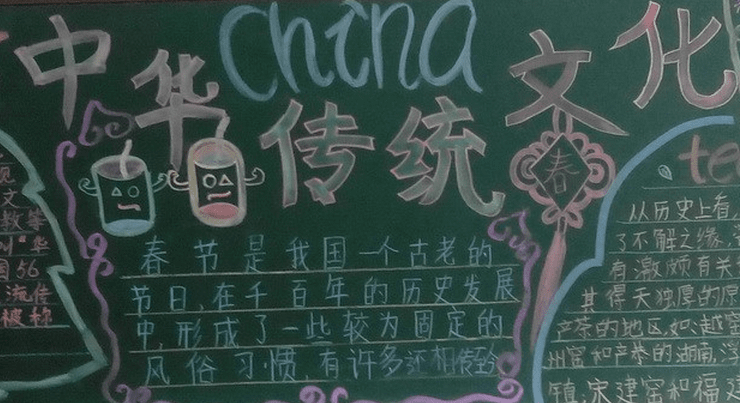 中华传统文化
China
春
文
教等
华
国56
流传
被称
春节是我国一个古老的
节日,在千百年的历史发展
中,形成了一些较为固定的
风俗习惯,有许多还相传
te
从历史上看,
了不解之缘
有激颇有关
其得天独厚的原
产茶的地区,如:越窑
州窑和产茶的湖南,浮
镇;宋建窑和福建